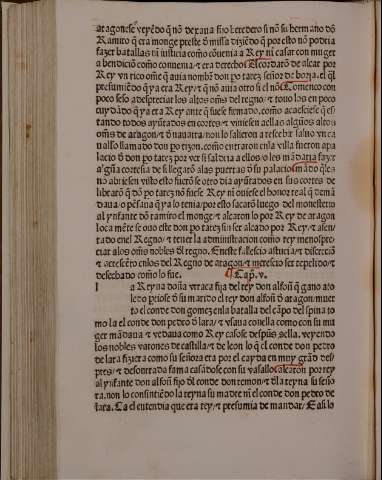 aragoneses veyẽdo q̃ nõ dexaua fijo heredero si nõ su hermano dõ
Ramiro q̃ era monge preste d̃ missa diziẽdo q̃ por esto nõ podria
fazer batallas ni iusticia como cõuenia a Rey ni casar con muger
a bendiciõ como conuenia ⁊ era derecho Acordarõ de alçar por
Rey vn rico om̃e q̃ auia nombr̃ don po tarez señor de borja. el q̃l
presumiẽdo q̃ ya era Rey ⁊ q̃ nõ auia otro si el nõ Comenco con
poco seso a despreciar los altos om̃s del regno ⁊ touo los en poco
cuydãdo q̃ ya era Rey ante q̃ fuese firmado. como acaesciese q̃ es
tando todos ayũtados en cortes ⁊ viniesen a ellas algũos altos
om̃s de aragon ⁊ d̃ nauarra non lo salieron a rescebir saluo vn ca
uallo llamado don po tizon. como entraron en la villa fueron a pa
lacio d̃ don po tarez por ver si saldria a ellos
alguna corteria de si llegarõ a las puertas d̃ su palacio mãdo q̃ les
no abriesen visto esto fuerõ se otro dia ayũtados en sus cortes de
librarõ q̃ dõ po tarez nõ fuese Rey ni ouiese el honor real q̃ demã
daua. o pẽsaua q̃ ya lo tenia por esto sacarõ luego del monesterio
al ynfante dõ ramiro el monge ⁊ alçaron lo por Rey de aragon
loca mẽte se ouo este don po tarez sin ser alçado por Rey ⁊ asen
tado en el Regno ⁊ tener la administracion como rey menospre
ciar a los om̃s nobles d̃l regno. En este fallescio astucia ⁊ discreciõ
⁊ acrescẽto en los del Regno de aragon ⁊ merescio ser repelido ⁊
desechado como lo fue. ¶ Cap. v.
l a Reyna doña vrraca fija del rey don alfon q̃ gano a to
ledo despues d̃ su marido el rey don alfon d̃ aragon muer
to el conde don gomez en la batalla del cãpo del spina to
mo la el conde don pedro d̃ lara ⁊ vsaua con ella como con su mu
ger mãdaua ⁊ vedaua como Rey casose despũs cõ ella. veyendo
los nobles varones de castilla ⁊ de leon lo q̃ el conde don pedro
de lara fiziera como su señora era por el cayda en muy grãd des
pres ⁊ desonrada fama casãdose con su vasallo alçaron por rey
al ynfante don alfon fijo d̃l conde don remon ⁊ d̃la reyna su seño
ra. non lo consintiẽdo la reyna su madre ni el conde don pedro de
lara. Ca el entendia que era rey ⁊ presumia de mandar Easi lo